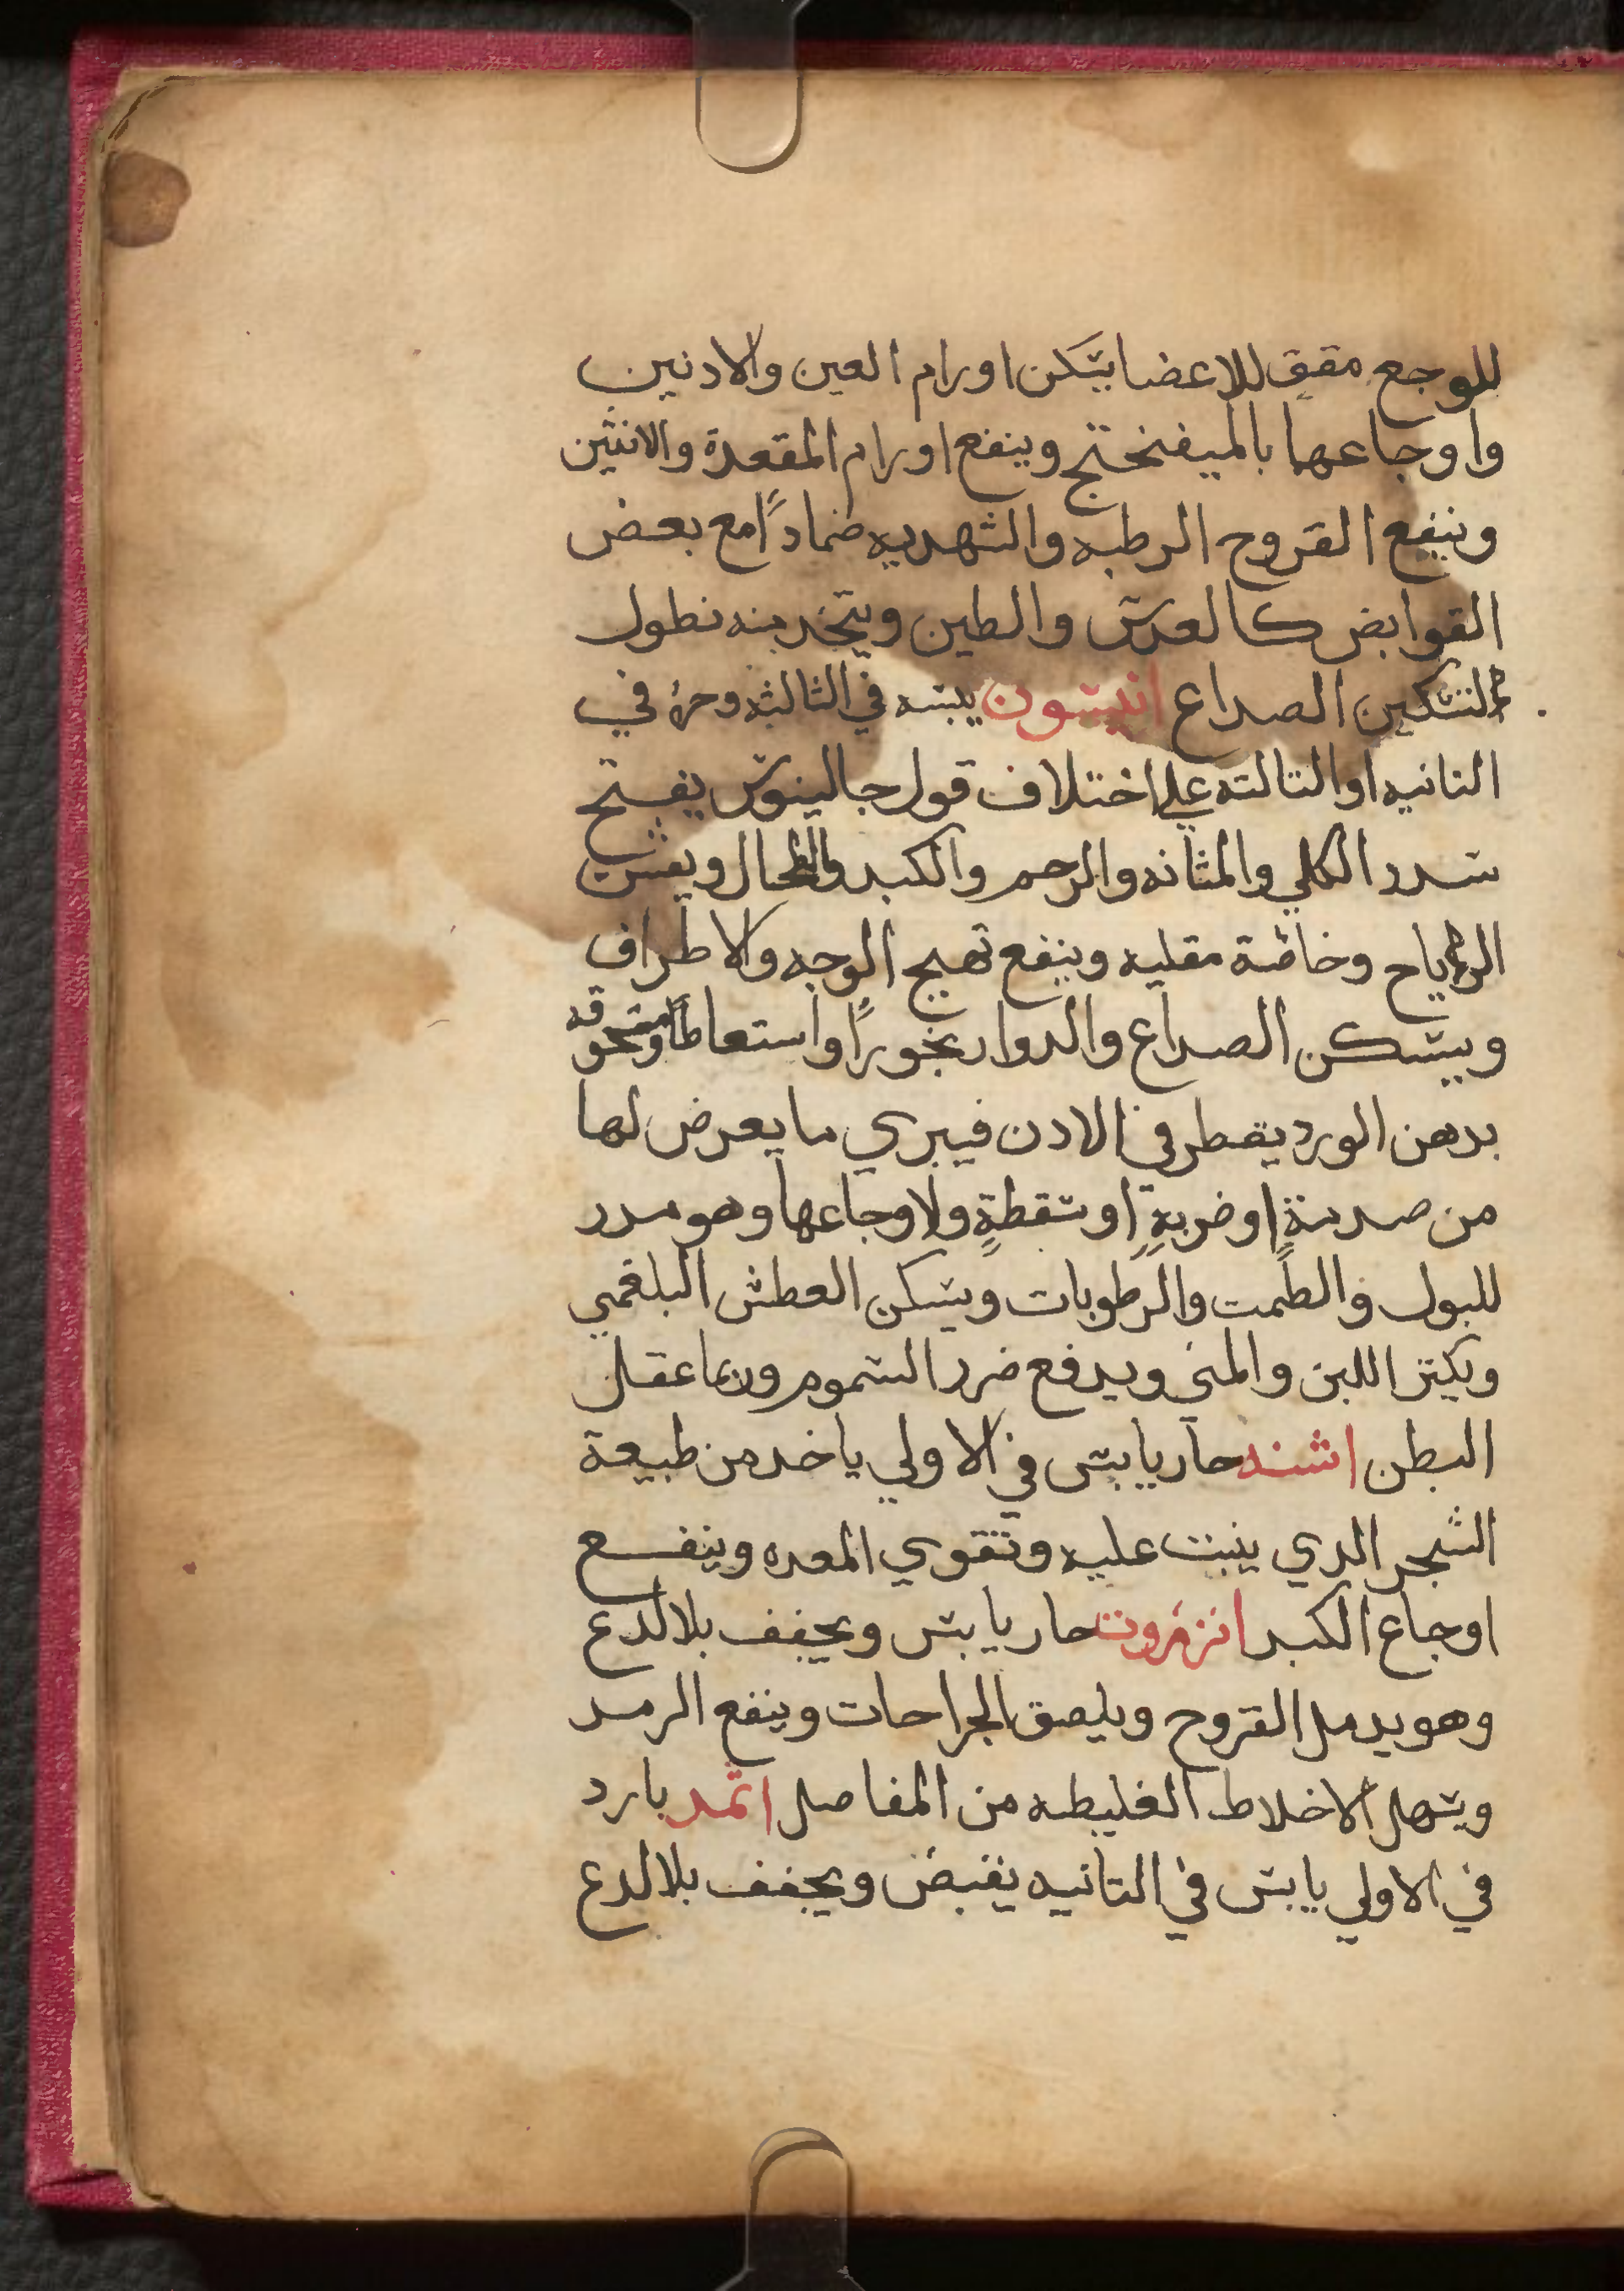 للوجع مقوٍ للاعضا يسكن اورام العين والادنين
واوجاعها بالميفنختج وينفع اورام المقعدة والانثين
وينفع القروح الرطبه والشهديه ضماداً مع بعض
القوابض كالعدس والطين ويتخد منه نطول
لتسكين الصداع انيسون يبسه في الثالثه وحره في
التانيه او التالته علي اختلاف قول جالينوس يفتح
سدد الكلي والمثانه والرحم والكبد والطحال ويفش
الرياح وخاصة مقليه وينفع تهيج الوجه والاطراف
ويسكن الصداع والدوار بخوراً واستعاطاً ومسحوقه
بدهن الورد يقطر في الادن فيبري ما يعرض لها
من صدمةٍ او ضربةٍ او سقطةٍ ولاوجاعها وهو مدر
للبول والطمت والرطوبات ويسكن العطش البلغمي
ويكثر اللبن والمني ويدفع ضرر السموم وربما عقل
البطن اشنه حار يابس في الاولي ياخد من طبيعة
الشجر الدي ينبت عليه وتقوي المعده وينفع
اوجاع الكبد انزروت حار يابس ويجفف بلا لدع
وهو يدمل القروح ويلصق الجراحات وينفع الرمد
ويسهل الاخلاط الغليطه من المفاصل اتمد بارد
في الاولي يابس في التانيه يقبض ويجفف بلا لدع